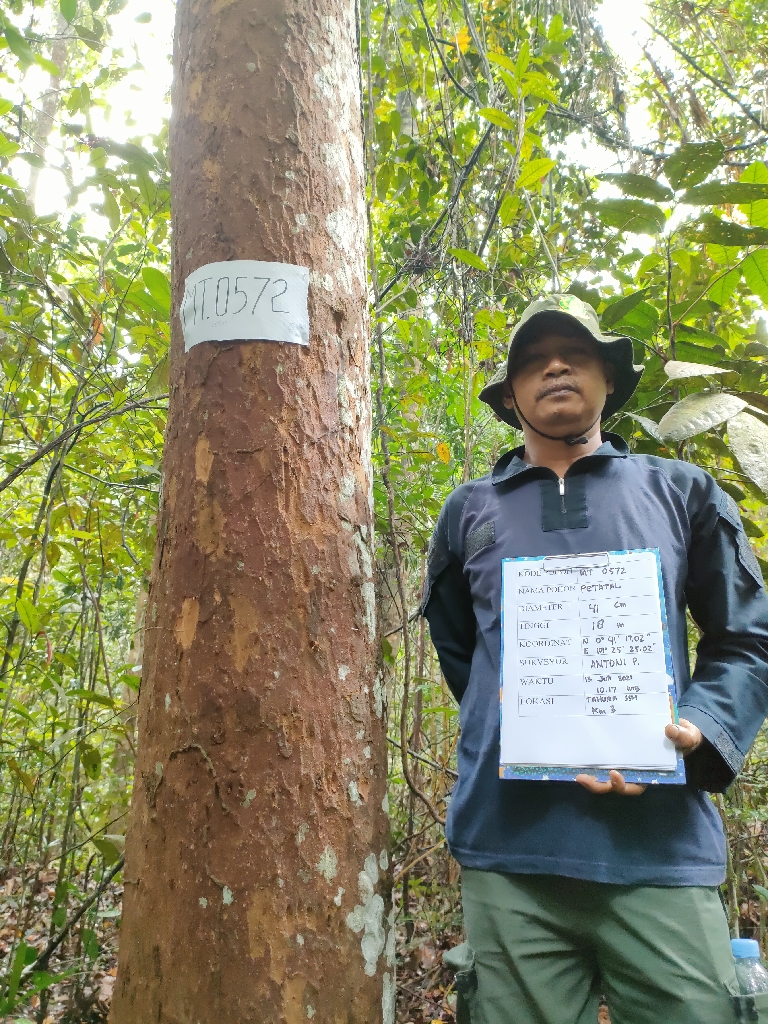 MT.0572
KODE POHON MT 0572
NAMA POHON PETATAL
DIAMETER 41 cm
TINGGI 18 m
KOORDINAT N 0° 41' 17.02"
E 101° 25' 28.02"
SURVEYOR ANTONI P.
WAKTU 15 Jun 2021
10.17 WIB
LOKASI TAHURA SSH
Km 3